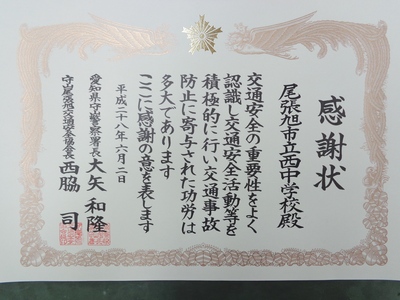 感謝状
尾張旭市立西中学校殿
交通安全の重要性をよく
認識し交通安全活動等を
積極的に行い交通事故
防止に寄与された功労は
多大であります
ここに感謝の意を表します
平成二十八年六月二日
愛知県守山警察署長 大矢和隆
守山尾張旭交通安全協会長 西脇司